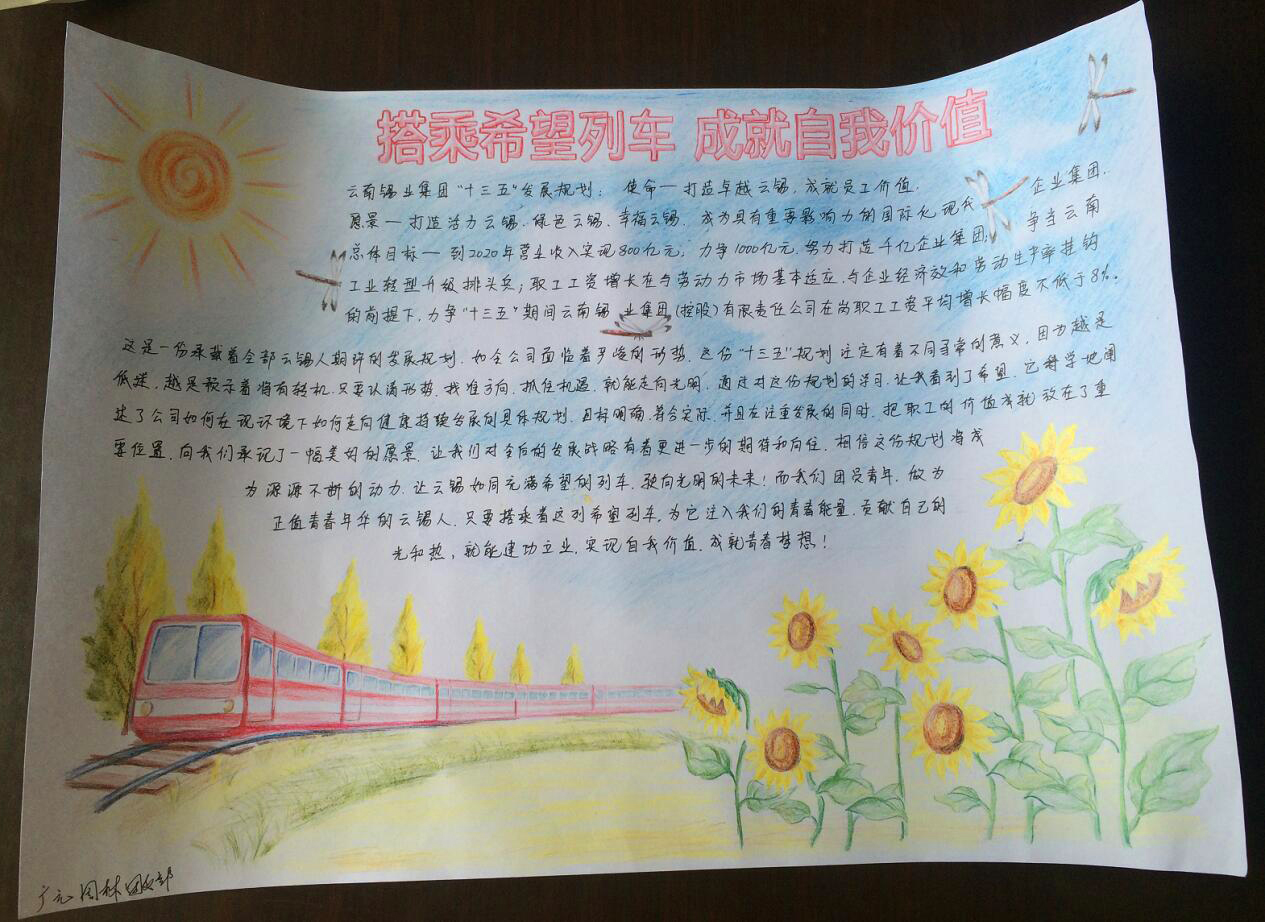 搭乘希望列车 成就自我价值
云南锡业集团“十三五”发展规划： 使命—打造卓越云锡，成就员工价值.
愿景—打造活力云锡、绿色云锡、幸福云锡、成为具有重要影响力的国际化现代企业集团.
总体目标—到2020年营业收入实现800亿元；力争1000亿元.努力打造千亿企业集团，争当云南
工业转型升级排头兵；职工工资增长在与劳动力市场基本适应、与企业经济效和劳动生产率挂钩
的前提下，力争“十三五”期间云南锡业集团(控股)有限责任公司在岗职工工资平均增长幅度不低于8%。
这是一份承载着全部云锡人期许的发展规划，如今公司面临着严峻的形势，这份“十三五”规划注定有着不同寻常的意义，因为越是
低迷，越是预示着将有转机，只要认清形势，找准方向，抓住机遇，就能走向光明，通过对这份规划的学习，让我看到了希望，它科学地阐
述了公司如何在现环境下如何走向健康持续发展的具体规划，目标明确，符合实际，并且在注重发展的同时，把职工的价值成就放在了重
要位置，向我们承记了一幅美好的愿景，让我们对今后的发展战略有着更进一步的期待和向往，相信这份规划将成
为源源不断的动力，让云锡如同充满希望的列车，驶向光明的未来！而我们团员青年，做为
正值青春年华的云锡人，只要搭乘着这列希望列车，为它注入我们的青春能量，贡献自己的
光和热，就能建功立业，实现自我价值，成就青春梦想！
广元园林团支部